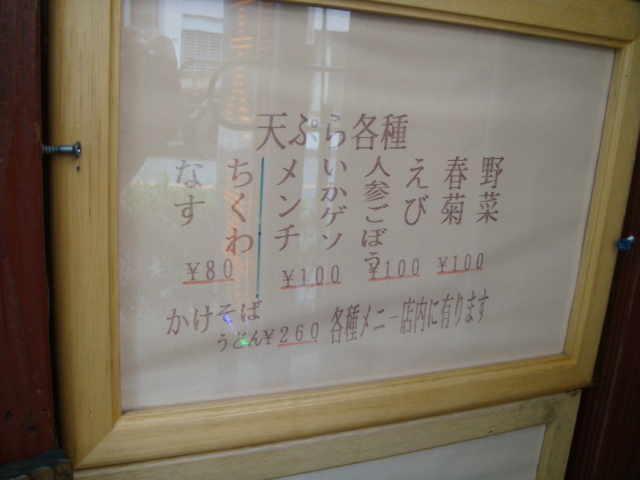 天ぷら各種
野菜
春菊
えび
人参ごぼう
いかゲソ
メンチ
ちくわ
なす
¥80 ¥100 ¥100 ¥100
かけそば
うどん¥260 各種メニー店内に有ります